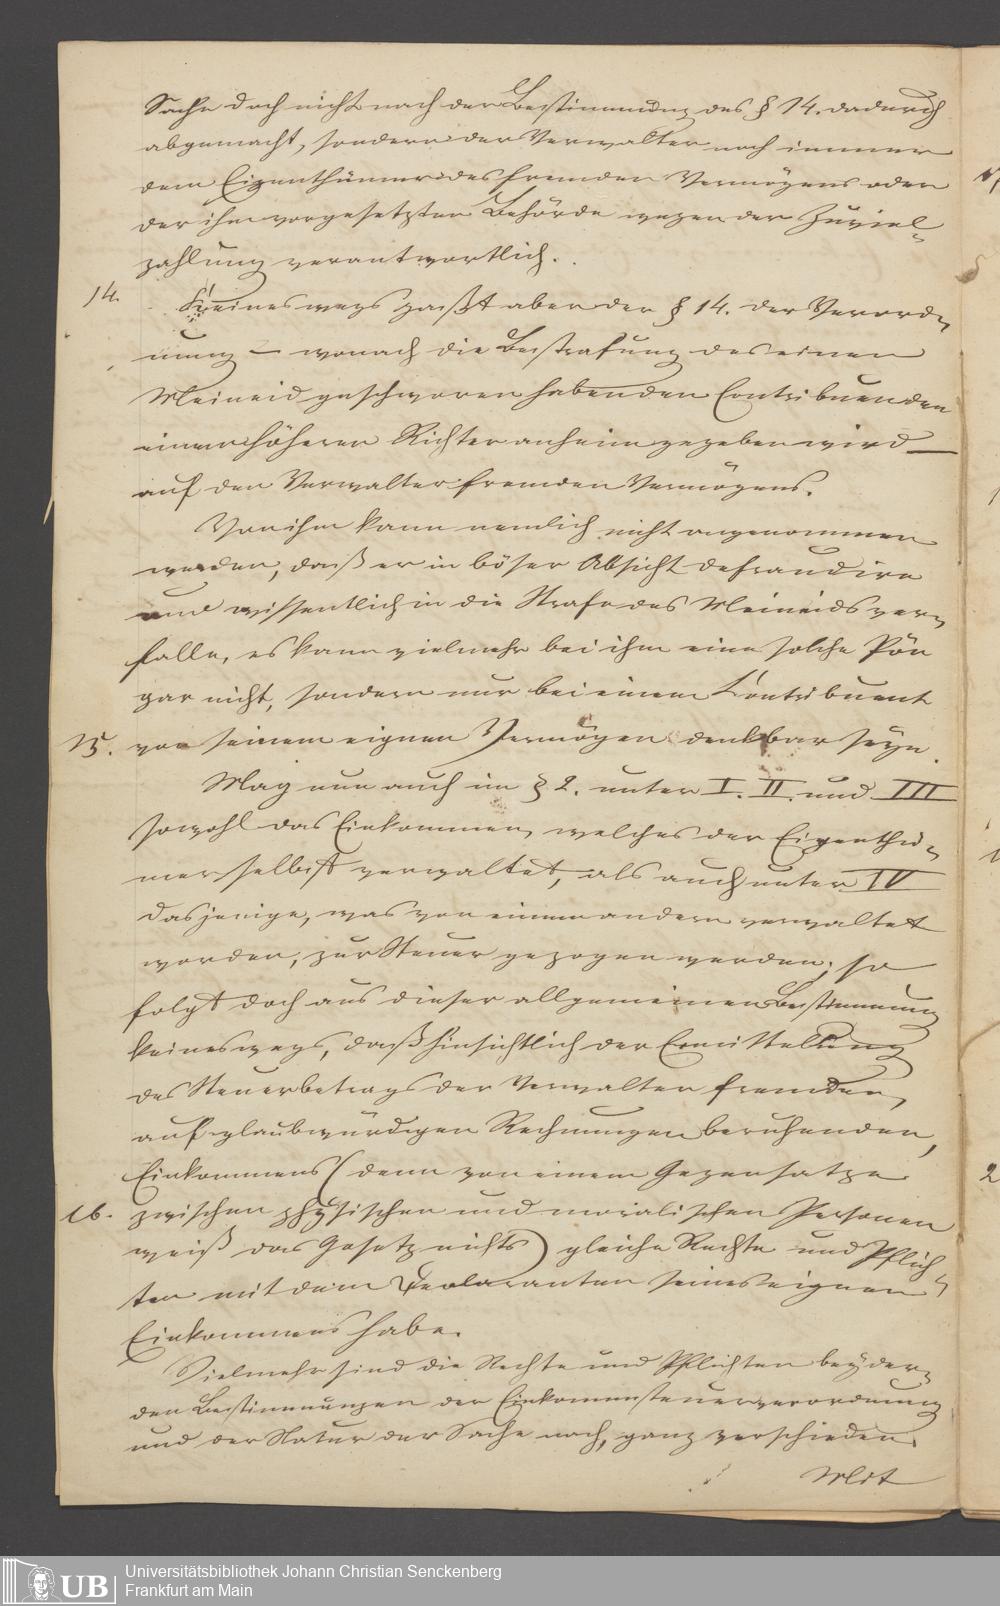 Sache doch nicht nach der Bestimmung des § 14. dadurch
abgemacht, sondern der Verwalter noch immer
dem Eigenthümer des fremden Vermögens oder
der ihm vorgesetzten Behörde wegen der Zuviel-
zahlung verantwortlich.
14. Keineswegs paßt aber der § 14. der Verord-
nung – wonach die Bestrafung des einen
Meineid geschworen habenden Contribuenden
einem höheren Richter anheim gegeben wird –
auf den Verwalter fremden Vermögens.
Von ihm kann nemlich nicht angenommen
werden, daß er in böser Absicht defraudire
und wissentlich in die Strafe des Meineids ver-
falle, es kann vielmehr bei ihm eine solche Pön
gar nicht, sondern nur bei einem Contribuent
15. von seinem eignen Vermögen denkbar seyn.
Mag nun auch im § 2. unter I. II. und III
sowohl das Einkommen, welches der Eigenthü-
mer selbst verwaltet, als auch unter IV
dasjenige, was von einem andern verwaltet
worden, zur Steuer gezogen werden; so
folgt doch aus dieser allgemeinen Bestimmung
keineswegs, daß hinsichtlich der Ermittelung
des Steuerbetrags der Verwalter fremden,
auf glaubwürdigen Rechnungen beruhenden,
Einkommens (denn von einem Gegensatze
16. zwischen physischen und moralischen Personen
weiß das Gesetz nichts) gleiche Rechte und Pflich-
ten mit dem Declaranten seines eignen
Einkommens habe.
Vielmehr sind die Rechte und Pflichten beyder
den Bestimmungen der Einkommensteuerverordnung
und der Natur der Sache nach, ganz verschieden.
Mit
UB
Universitätsbibliothek Johann Christian Senckenberg
Frankfurt am Main